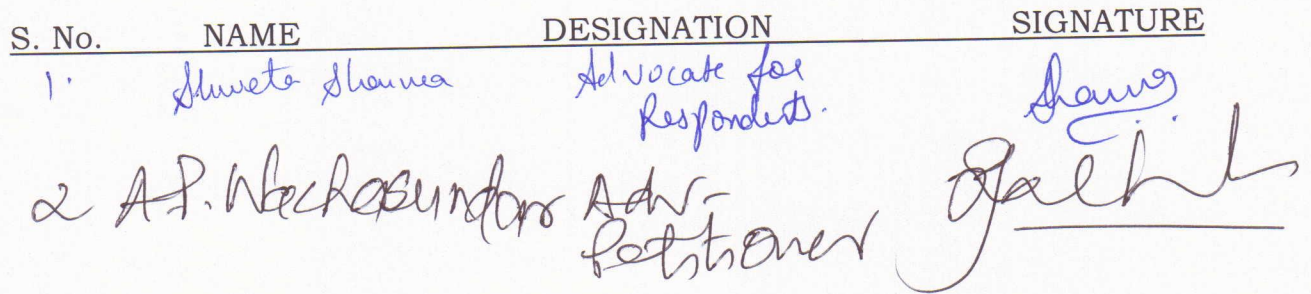 S. No. NAME DESIGNATION SIGNATURE
1. Shweta Sharma Advocate for
Respondents.
2 A.P. Wachasundar Adv-
Petitioner